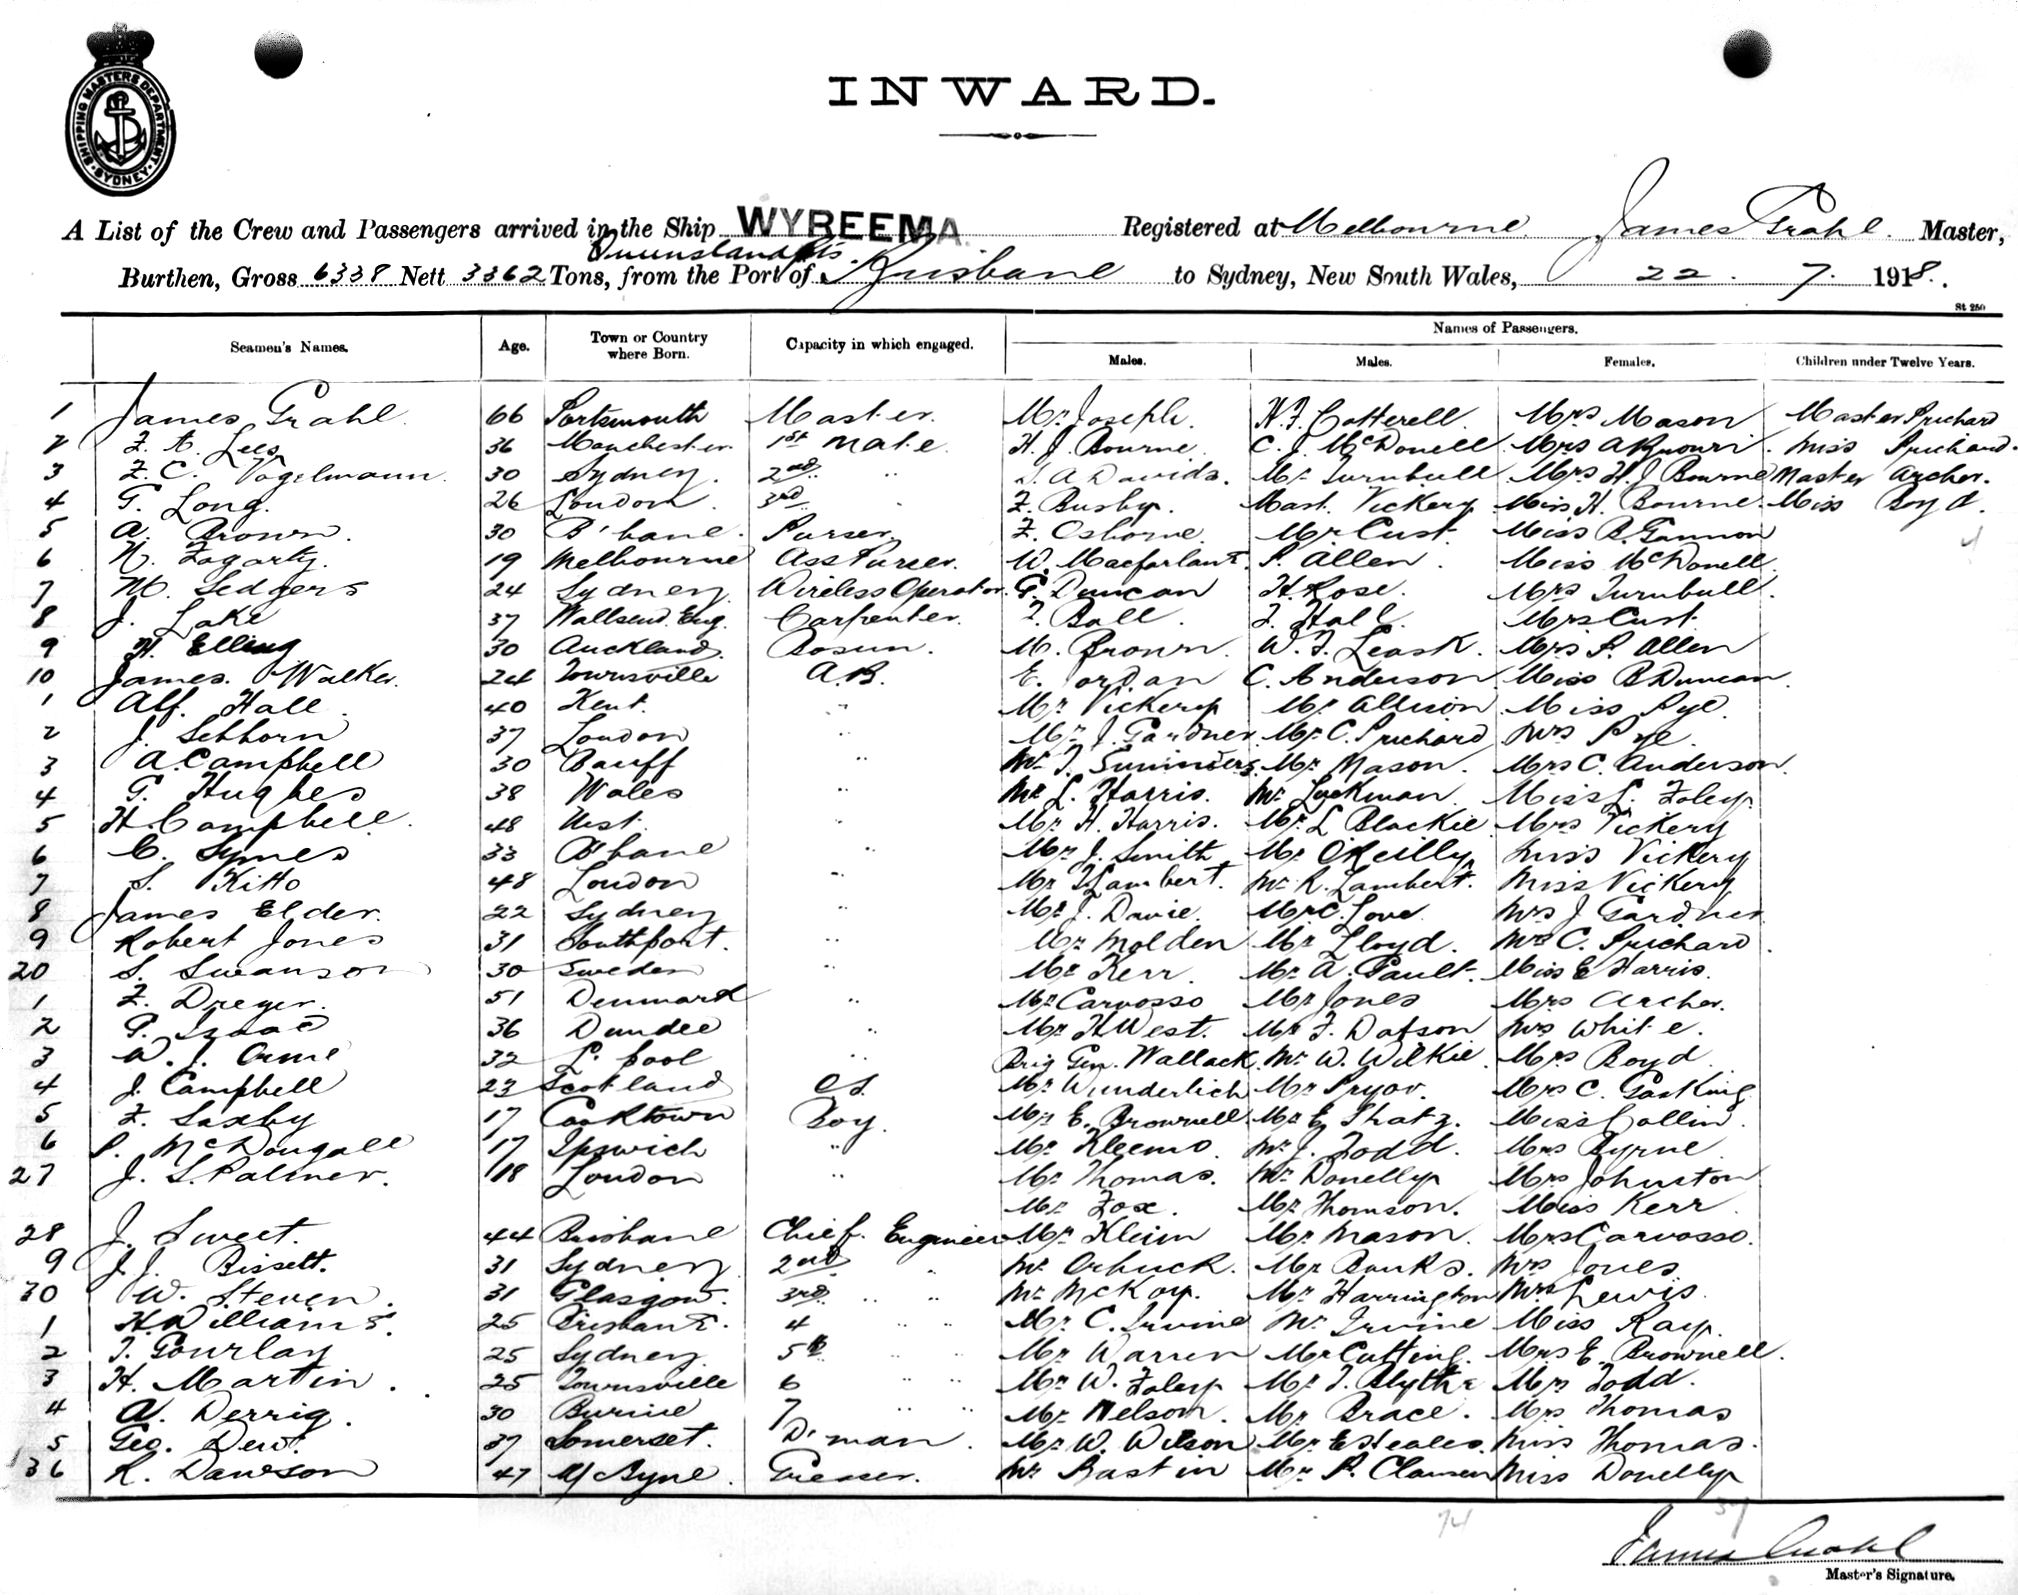 SHIPPING MASTERS DEPARTMENT
SYDNEY
INWARD.
A List of the Crew and Passengers arrived in the Ship WYREEMA Registered at Melbourne James Grahl. Master,
Queensland Pts.
Burthen, Gross 6338 Nett 3362 Tons, from the Port of Brisbane to Sydney, New South Wales, 22. 7. 1918.
St 250
Seamen's Names. Age. Town or Country where Born. Capacity in which engaged. Names of Passengers.
Males. Males. Females. Children under Twelve Years.
1 James Grahl. 66 Portsmouth Master. Mr Joseph. H.F. Cotterell. Mrs Mason Master Prichard
2 F. A. Lees 36 Manchester 1st Mate. H. J. Bourne. C. J. McDonell Mrs A Brown. Miss Prichard.
3 F. C. Vogelmann. 30 Sydney. 2nd " A Davids. Mr Turnbull Mrs H. J Bourne Master Archer.
4 G. Long. 26 London. 3rd F. Busby. Mast. Vickery Miss H. Bourne. Miss Boyd.
5 A. Brown. 30 B'bane. Purser. F. Osborne. Mr Cust. Miss B. Gannon
4
6 N. Fogarty. 19 Melbourne Ass Purser. W. Macfarlane. P. Allen. Miss McDonell.
7 M. Sedgers 24 Sydney. Wireless Operator. G. Duncan H. Rose. Mrs Turnbull.
8 J. Lake 37 Wallsend Eng. Carpenter. F. Ball. F. Hall. Mrs Cust
9 H. Elling 30 Auckland. Bosun. M. Brown. W. F. Leask. Mrs P. Allen
10 James Walker. 24 Townsville A.B. E. Jordan C. Anderson. Miss B Duncan.
1 Alf. Hall. 40 Kent. " Mr Vickery Mr Allison. Miss Pye.
2 J. Sebborn 37 London " Mr J. Gardner. Mr C. Prichard Mrs Pye.
3 A. Campbell 30 Banff " Mr T. Summers. Mr Mason. Mrs C. Anderson.
4 G. Hughes 38 Wales " Mr L. Harris. Mr Luckman. Miss L. Foley.
5 H. Campbell. 48 Uist. " Mr H. Harris. Mr L Blackie Mrs Vickery
6 C. Symes 33 B'bane " Mr J. Smith. Mr O'Reilly. Miss Vickery
7 S. Kitto 48 London " Mr Lambert. Mr R. Lambert. Miss Vickery
8 James Elder. 22 Sydney " Mr J. Davie. Mr C. Love. Mrs J Gardner
9 Robert Jones 31 Southport. " Mr Molden Mr Lloyd. Mrs C. Prichard.
20 S. Swanson 30 Sweden " Mr Kerr. Mr A. Pault. Miss E Harris.
1 F. Dreyer. 51 Denmark " Mr Carvosso Mr Jones Mrs Archer.
2 P. Isaac 36 Dundee " Mr H West. Mr F. Dobson Mrs White.
3 W. J. Orme 32 L'pool " Brig Gen. Wallack. Mr W. Wilkie Mrs Boyd
4 J. Campbell 23 Scotland O.S. Mr Wunderlich Mr Pryor. Mrs C. Gosking
5 F. Saxby 17 Cooktown Boy. Mr E. Brownell. Mr E. Thatz. Miss Collin.
6 P. McDougall 17 Ipswich " Mr Kleemo. Mr J. Todd. Mrs Byrne
27 J. S. Palmer. 18 London " Mr Thomas. Mr Donelly Mrs Johnston
Mr Fox. Mr Thomson. Miss Kerr
28 J. Sweet. 44 Brisbane Chief. Engineer Mr Kleim Mr Mason. Mrs Carvosso.
9 J. J. Bissett. 31 Sydney 2nd " Mr Orbuck. Mr Banks. Mrs Jones
30 W. Steven. 31 Glasgow. 3rd " " Mr McKay. Mr Harrington Mrs Lewis.
1 H. Williams. 25 Brisbane. 4 " " Mr C. Irvine Mr Irvine Miss Ray.
2 T. Gourlay 25 Sydney 5th " " Mr Warren Mr Cutting. Mrs E. Brownell.
3 H. Martin. 25 Townsville 6 " " Mr W. Foley Mr T. Blythe Mrs Todd.
4 A. Derrig. 30 Burnie 7 " " Mr Nelson. Mr Brace. Mrs Thomas
5 Geo. Dew. 37 Somerset. D'man. Mr W. Wilson Mr E Heales. Miss Thomas.
36 R. Dawson 47 Greaser. Mr Bastin Mr P. Clausen Miss Donelly
74 37
James Grahl
Master's Signature.